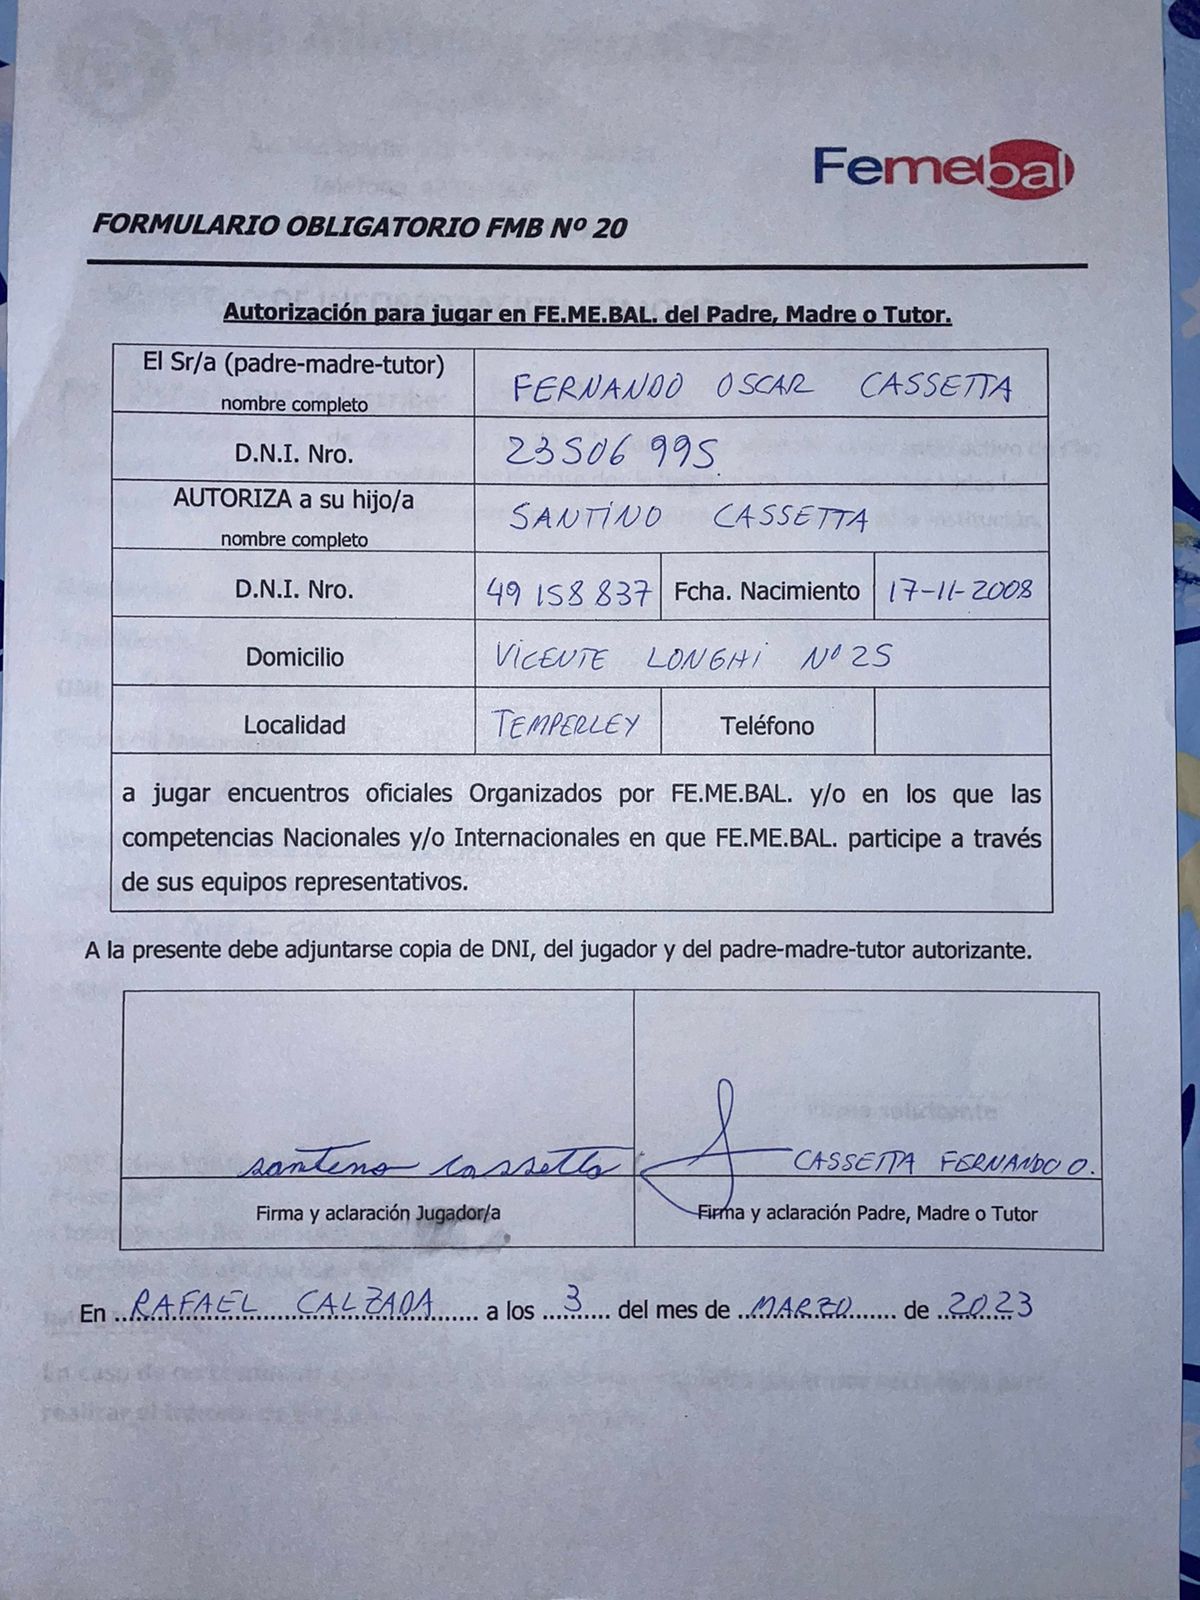 Femebal
FORMULARIO OBLIGATORIO FMB Nº 20
Autorización para jugar en FE.ME.BAL. del Padre, Madre o Tutor.
El Sr/a (padre-madre-tutor)
nombre completo
FERNANDO OSCAR CASSETTA
D.N.I. Nro.
23506 995
AUTORIZA a su hijo/a
nombre completo
SANTINO CASSETTA
D.N.I. Nro.
49 158 837
Fcha. Nacimiento
17-11-2008
Domicilio
VICENTE LONGHI Nº 25
Localidad
TEMPERLEY
Teléfono
a jugar encuentros oficiales Organizados por FE.ME.BAL. y/o en los que las
competencias Nacionales y/o Internacionales en que FE.ME.BAL. participe a través
de sus equipos representativos.
A la presente debe adjuntarse copia de DNI, del jugador y del padre-madre-tutor autorizante.
santino cassetta
CASSETTA FERNANDO O.
Firma y aclaración Jugador/a
Firma y aclaración Padre, Madre o Tutor
En RAFAEL CALZADA a los 3 del mes de MARZO de 2023